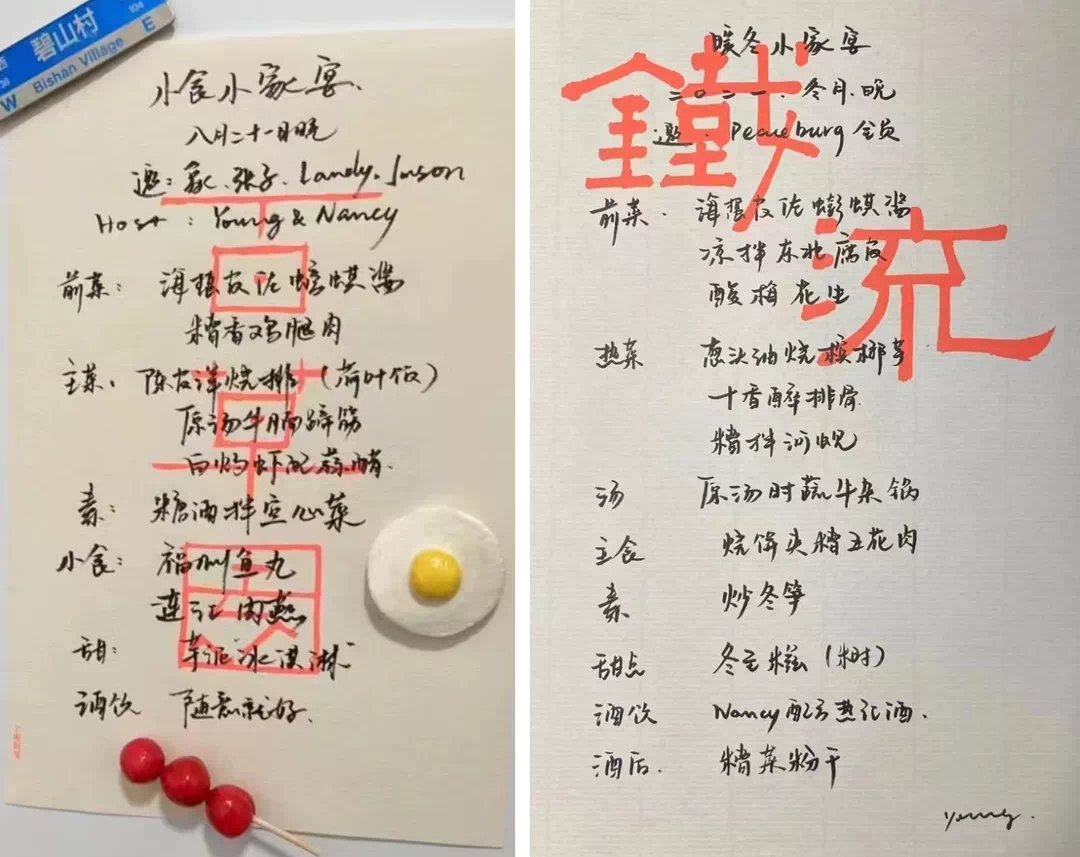 碧山村
Bishan Village
W
E
小食小家宴.
八月二十一日晚
邀: 张子. Landy. Juson
Host : Young & Nancy
前菜: 海蜇皮佐蟛蜞酱
糟香鸡腿肉
主菜. 陈皮洋烧排 (荷叶饭)
原汤牛腩蹄筋
白灼虾配蒜蓉
素: 糟酒拌空心菜
小食: 福州鱼丸
连江肉燕
甜: 芋泥冰淇淋
酒饮 随意就好.
暖冬小家宴
二〇二一. 冬月.晚
邀. Peaceburg 全员
鐵
流
前菜. 海蜇皮佐蟛蜞酱
凉拌东北腐皮
酸梅花生
热菜 葱头油烧槟榔芋
十香醉排骨
糟拌河蚬
汤 原汤时蔬牛杂锅
主食 烧饼夹糟五花肉
素 炒冬笋
甜点 冬至糍 (木时)
酒饮 Nancy配方热红酒.
酒后. 糟菜粉干
Young.